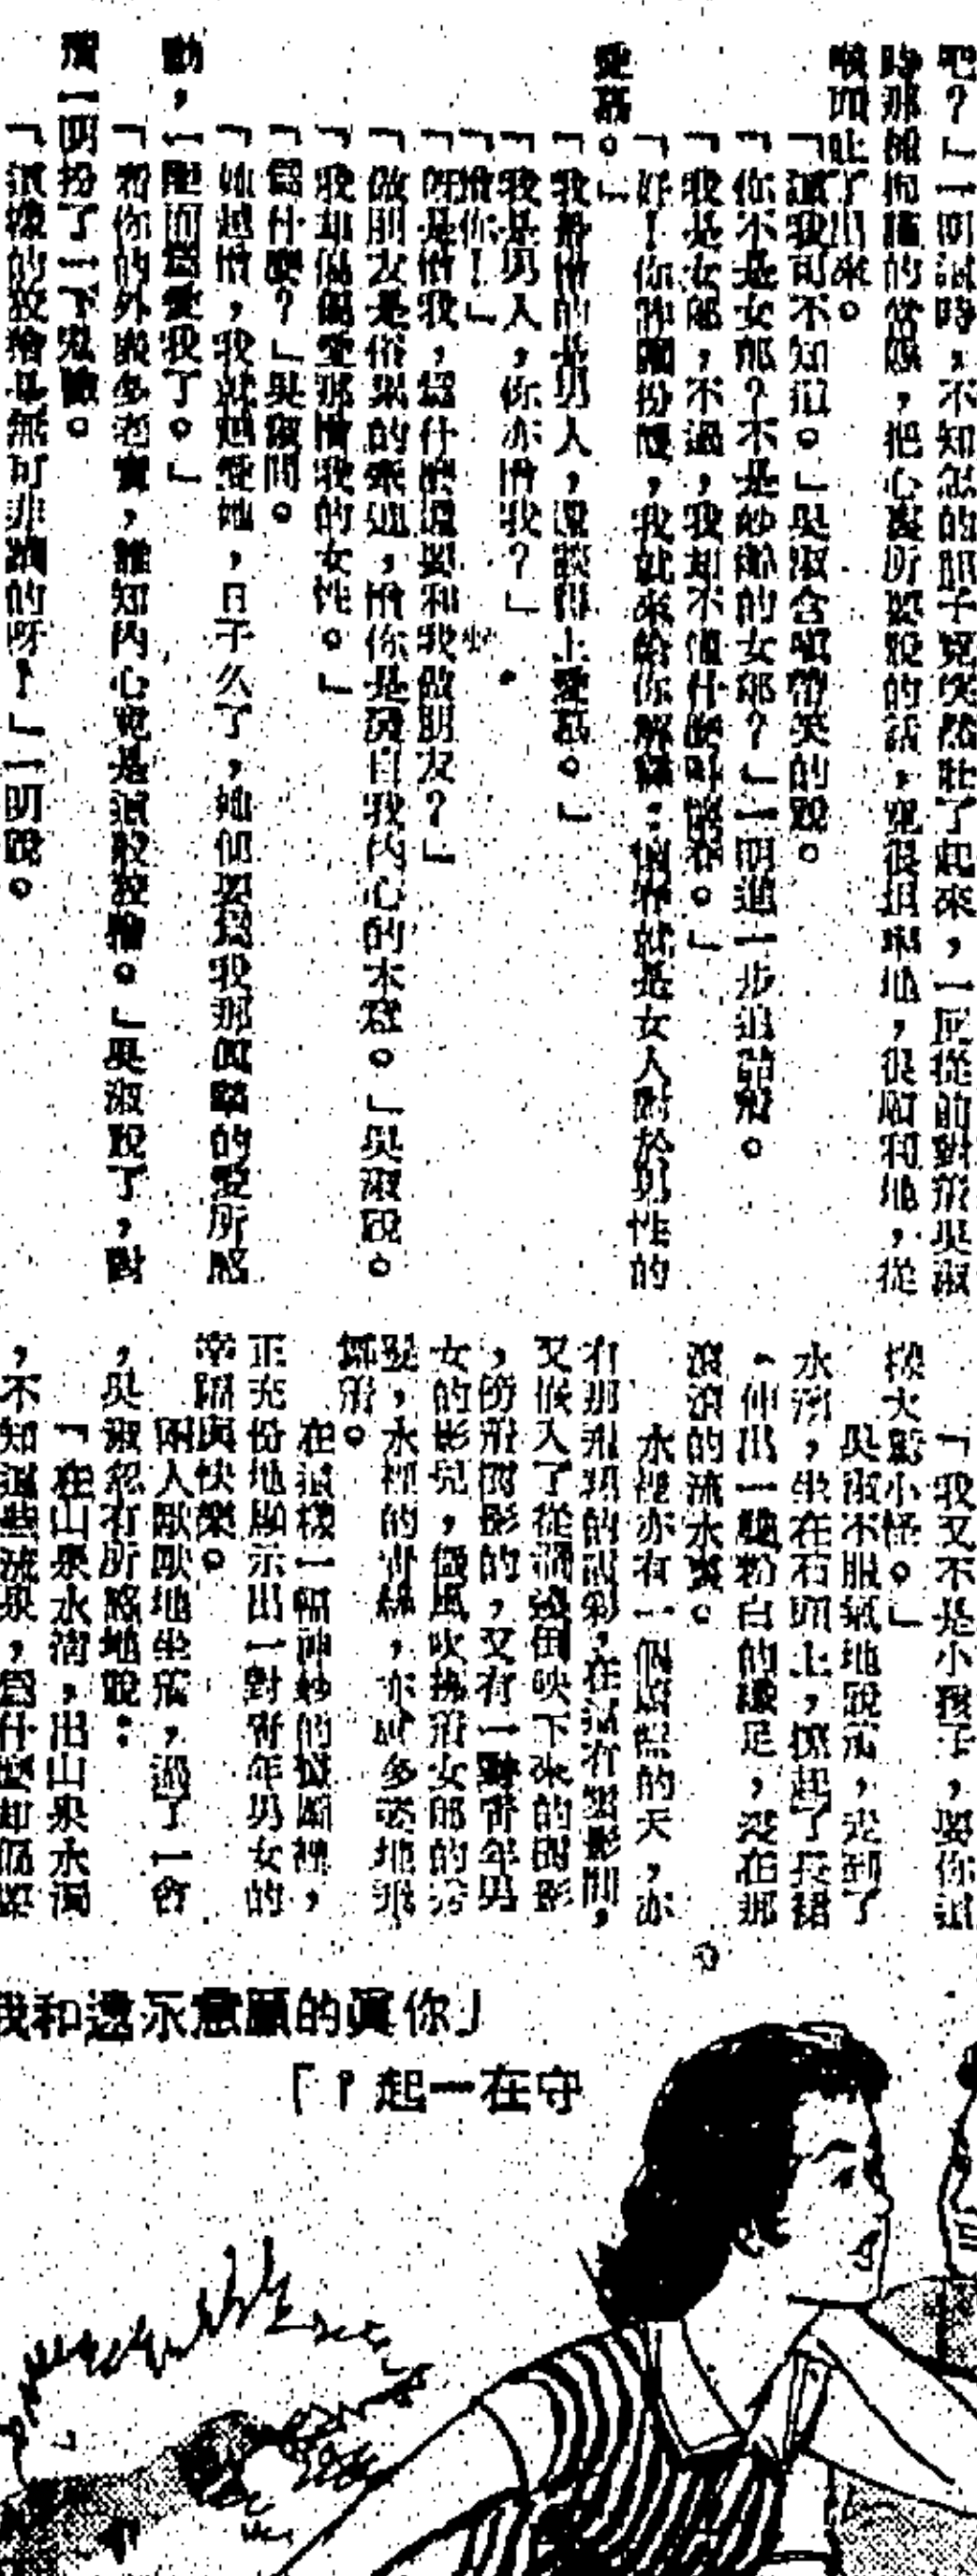 吧？」一明說時，不知怎的胆子竟突然壯了起來，一反從前對着吳淑
時那種拘謹的常態，把心裏所要說的話，竟很坦率地，很順利地，從
喉頭吐了出來。
「這我可不知道。」吳淑含嗔帶笑的說。
「你不是女郎？不是妙齡的女郎？」一明進一步追詰着。
「我是女郎，不過，我却不懂什麽叫懷春。」
「好！你詐糊扮懵，我就來給你解釋：懷春就是女人對於男性的
愛慕。」
「我最憎的是男人，還談得上愛慕。」
「我是男人，你亦憎我？」
「憎你！」
「旣是憎我，爲什麽還要和我做朋友？」
「做朋友是俗累的牽連，憎你是我自我內心的本意。」吳淑說。
「我却偏偏愛那憎我的女性。」
「爲什麽？」吳淑問。
「她越憎，我就越愛她，日子久了，她便要爲我那眞摯的愛所感
動，一轉而爲愛我了。」
「看你的外表多老實，誰知內心竟是這般狡獪。」吳淑說了，對
着一明扮了一下鬼臉。
「這樣的狡獪是無可非議的呀！」一明說。
「我又不是小孩子，要你這
樣大驚小怪。」
吳淑不服氣地說着，走到了
水湄，坐在石頭上，撩起了長裙
，伸出一雙粉白的纖足，浸在那
滾滾的流水裏。
水裡亦有一個蔚藍的天，亦
有那飛翔的雲彩，在這有雲影間，
又候入了從澗邊倒映下來的樹影
，傍着樹影的，又有一對靑年男
女的影兒，微風吹拂着女郎的秀
髮，水裡的靑絲，亦就多姿地飛
舞着。
在這樣一幅神妙的摸圖裡，
正充份地顯示出一對靑年男女的
幸福與快樂。
兩人默默地坐着，過了一會
，吳淑忽有所感地說：
「在山泉水淸，出山泉水濁
，不知這些流泉，爲什麽却偏要
「你眞的願意永遠和我
守在一起？」